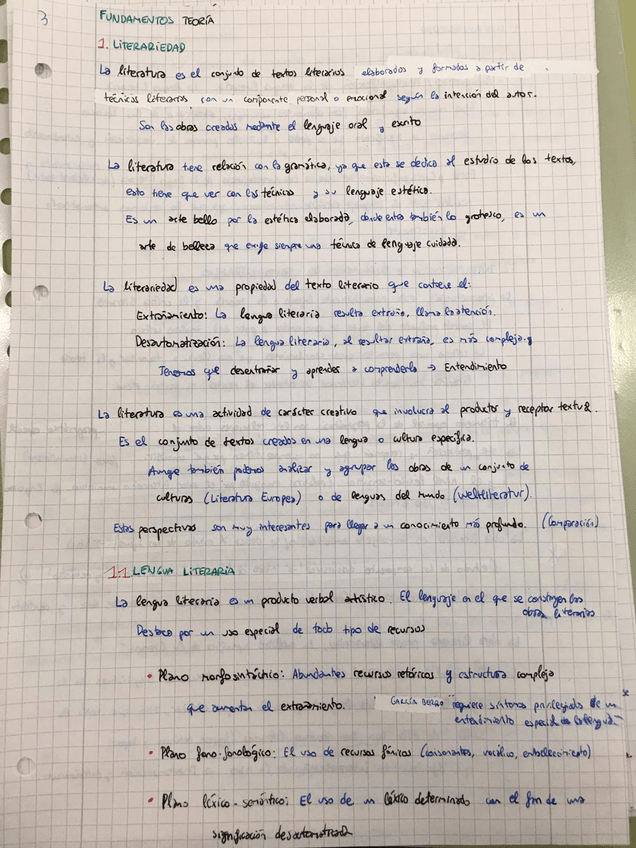 3
FUNDAMENTOS TEORÍA
1. LITERARIEDAD
La literatura es el conjunto de textos literarios elaborados y formados a partir de
técnicas literarias con un componente personal o emocional según la intención del autor.
Son las obras creadas mediante el lenguaje oral y escrito
La literatura tiene relación con la gramática, ya que esta se dedica al estudio de los textos,
esto tiene que ver con las técnicas y su lenguaje estético.
Es un arte bello por la estética elaborada, donde entra también lo grotesco, es un
arte de belleza que exige siempre una técnica de lenguaje cuidada.
La literariedad es una propiedad del texto literario que contiene el:
Extrañamiento: La lengua literaria resulta extraña, llama la atención.
Desautomatización: La lengua literaria, al resultar extraña, es más compleja y
Tenemos que desentrañar y aprender a comprenderla → Entendimiento
La literatura es una actividad de carácter creativo que involucra al productor y receptor textual.
Es el conjunto de textos creados en una lengua o cultura específica.
Aunque también podemos analizar y agrupar las obras de un conjunto de
culturas (Literatura Europea) o de lenguas del mundo (Weltliteratur).
Estas perspectivas son muy interesantes para llegar a un conocimiento más profundo. (Comparación)
1.1 LENGUA LITERARIA
La lengua literaria es un producto verbal artístico. El lenguaje en el que se construyen las
obras literarias
Destaca por un uso especial de todo tipo de recursos
• Plano morfosintáctico: Abundantes recursos retóricos y estructura compleja
que aumentan el extrañamiento. GARCÍA BERRO "requiere síntomas privilegiados de un
entendimiento especial de la lengua"
• Plano fono-fonológico: El uso de recursos fónicos (consonantes, vocálico, embellecimiento)
• Plano léxico-semántico: El uso de un léxico determinado con el fin de una
significación desautomatizada